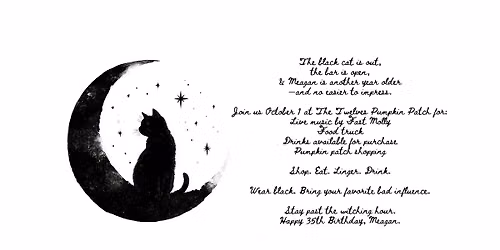 The black cat is out,
the bar is open,
& Meagan is another year older
—and no easier to impress.
Join us October 1 at The Twelves Pumpkin Patch for:
Live music by Fast Molly
Food truck
Drinks available for purchase
Pumpkin patch shopping
Shop. Eat. Linger. Drink.
Wear black. Bring your favorite bad influence.
Stay past the witching hour.
Happy 35th Birthday, Meagan.